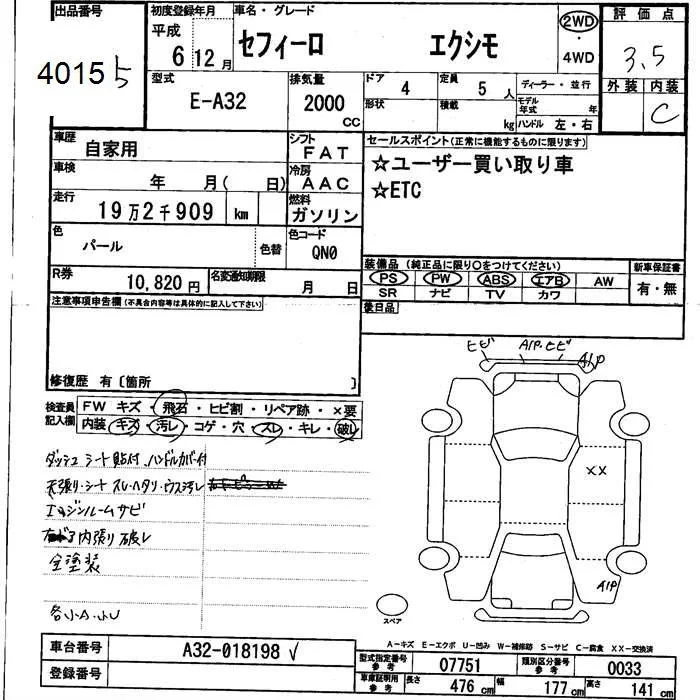 出品番号
40155
初度登録年月
平成
6 12月
車名・グレード
セフィーロ エクシモ
2WD
・
4WD
評価点
3.5
外装 内装
C
型式
E-A32
排気量
2000
CC
ドア
4
定員
5 人
形状
積載
kg
ディーラー・並行
モデル年式 年
ハンドル 左・右
車歴
自家用
シフト
FAT
車検
年 月( 日)
冷房
AAC
走行
19万2千909 km
燃料
ガソリン
色
パール
色替
色コード
QN0
R券
10,820円
名変通知期限
月 日
セールスポイント(正常に機能するものに限ります)
☆ユーザー買い取り車
☆ETC
装備品(純正品に限り○をつけてください)
PS PW ABS エアB AW
SR ナビ TV カワ
新車保証書
有・無
後日品
注意事項申告欄(不具合内容等は具体的に記入して下さい)
修復歴 有〔箇所 〕
検査員記入欄
FW キズ・飛石・ヒビ割・リペア跡・×要
内装 キズ・汚レ・コゲ・穴・スレ・キレ・破レ
ダッシュシート貼付、ハンドルカバー付
天張り・シート スレ・ヘタリ・ウス汚レ
エンジンルームサビ
ドア内張り破レ
全塗装
各小A.小U
ヒビ
A1P.ヒビ
A1P
XX
A1P
スペア
A-キズ E-エクボ U-凹み W-補修跡 S-サビ C-腐食 XX-交換済
車台番号
A32-018198
登録番号
型式指定番号
参考
07751
類別区分番号
参考
0033
車庫証明用
参考
長さ 476cm
幅 177cm
高さ 141cm